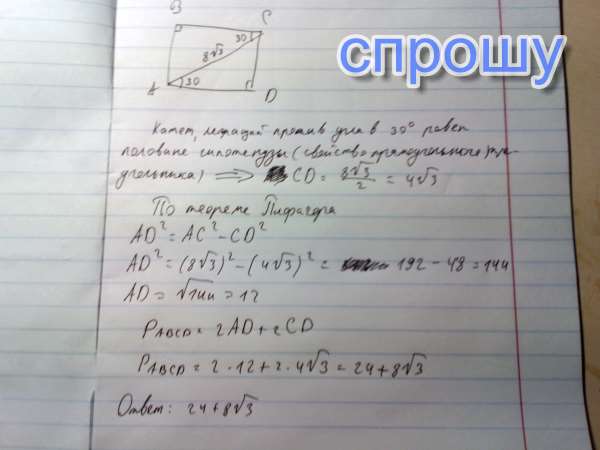 B
C
30
8√3
спрошу
30
A
D
Катет, лежащий против угла в 30° равен
половине гипотенузы (свойство прямоугольного тре-
угольника) ⟹ CD = 8√3/2 = 4√3
По теореме Пифагора
AD² = AC² - CD²
AD² = (8√3)² - (4√3)² = 192 - 48 = 144
AD = √144 = 12
PABCD = 2AD + 2CD
PABCD = 2 · 12 + 2 · 4√3 = 24 + 8√3
Ответ: 24 + 8√3